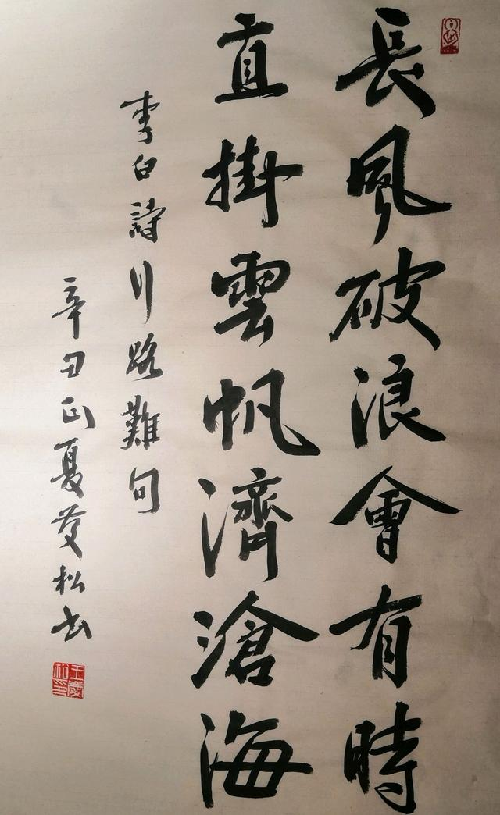 長風破浪會有時
直掛雲帆濟滄海
李白詩行路難句
辛丑正夏慶松書